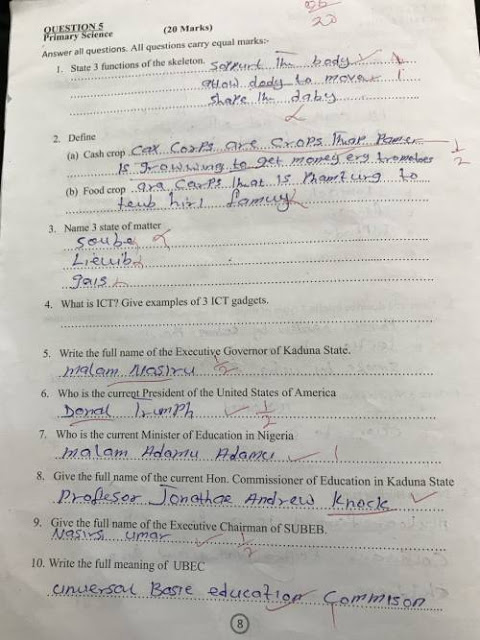 QUESTION 5
Primary Science (20 Marks)
20
Answer all questions. All questions carry equal marks:-
1. State 3 functions of the skeleton. Sorrurt Ihe body
allow dody to move 1
share Ihe daby
2. Define
(a) Cash crop Cax Corps are Crops that 1/2
Is growwing to get money
(b) Food crop ara Carps that Is to
3. Name 3 state of matter
Soube
Lieuib
gais
4. What is ICT? Give examples of 3 ICT gadgets.
5. Write the full name of the Executive Governor of Kaduna State.
malam Nasiru 1/2
6. Who is the current President of the United States of America
Donal Trumph 1/2
7. Who is the current Minister of Education in Nigeria
malam Adamu Adamu 1
8. Give the full name of the current Hon. Commissioner of Education in Kaduna State
Profesor Jonathae Andrew Knock
9. Give the full name of the Executive Chairman of SUBEB.
Nasirs umar 1/2
10. Write the full meaning of UBEC
unuersal Basie education Commison
8